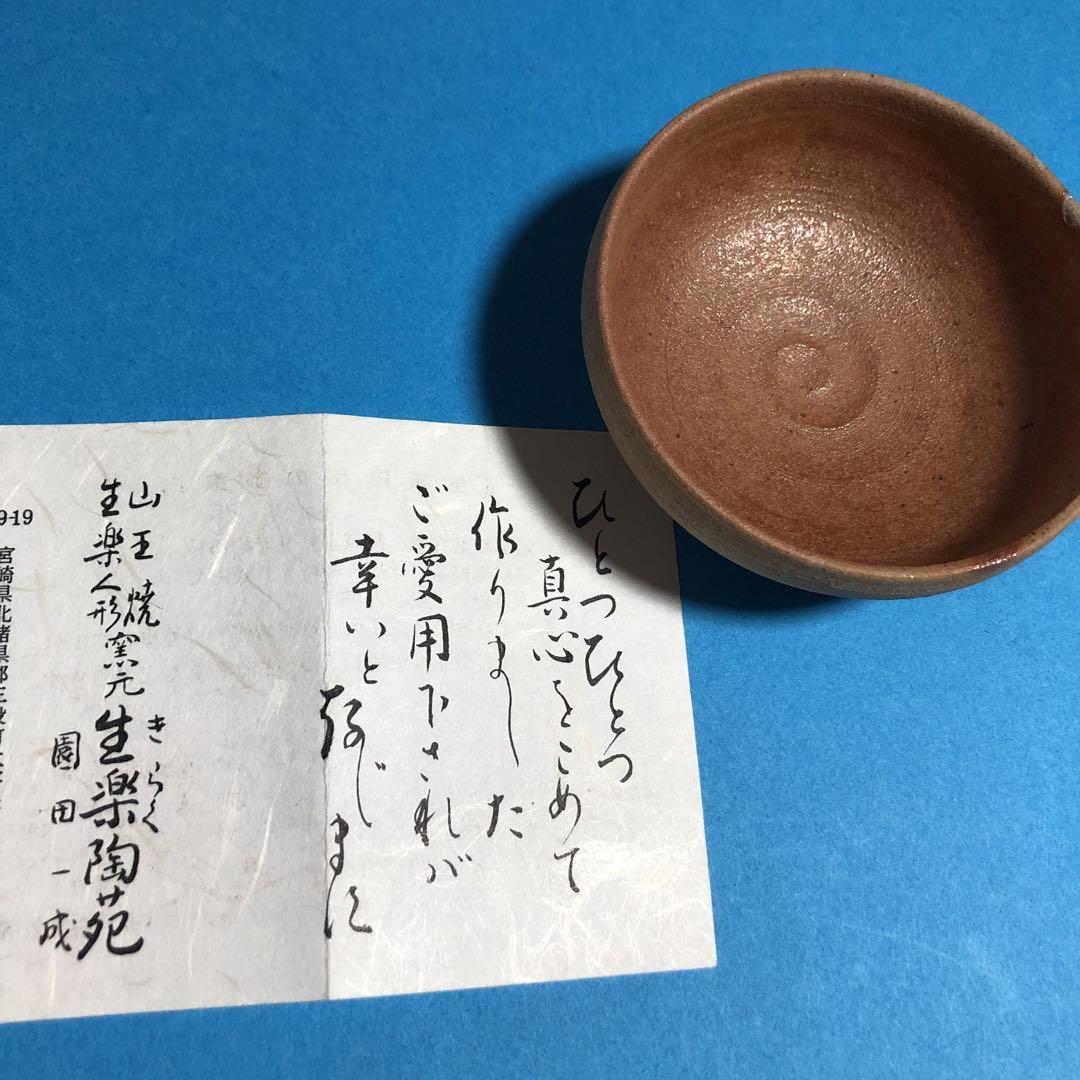 ひとつひとつ
真心をこめて
作りました
ご愛用下されば
幸いと存じます
山王焼
生楽人形窯元
きらく
生楽陶苑
園田一成
9-19
宮崎県北諸県郡三股町